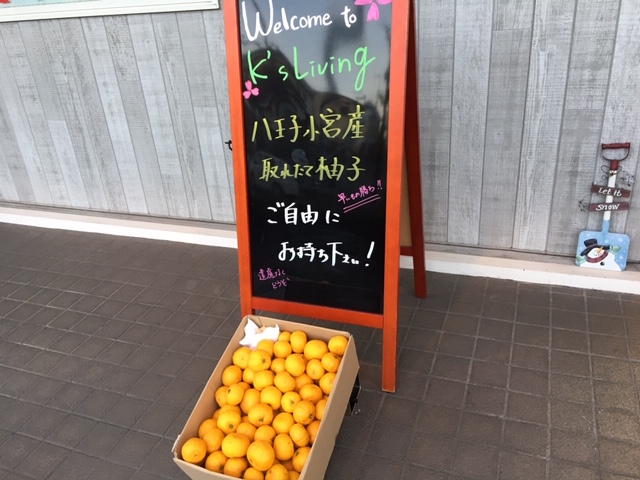 Welcome to
K's Living
八王子小宮産
取れたて柚子
早いもの勝ち!!
ご自由に
お持ち下さい!
遠慮なく
どうぞ
Let it
SNOW